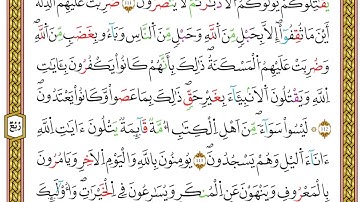 يُقَٰتِلُوكُمْ يُوَلُّوكُمُ الْأَدْبَارَ ثُمَّ لَا يُنصَرُونَ ١١١ ضُرِبَتْ عَلَيْهِمُ الذِّلَّةُ
أَيْنَ مَا ثُقِفُوا إِلَّا بِحَبْلٍ مِّنَ اللَّهِ وَحَبْلٍ مِّنَ النَّاسِ وَبَاءُو بِغَضَبٍ مِّنَ اللَّهِ
وَضُرِبَتْ عَلَيْهِمُ الْمَسْكَنَةُ ذَٰلِكَ بِأَنَّهُمْ كَانُوا يَكْفُرُونَ بِـَٔايَٰتِ
اللَّهِ وَيَقْتُلُونَ الْأَنۢبِيَاءَ بِغَيْرِ حَقٍّ ذَٰلِكَ بِمَا عَصَوا وَّكَانُوا يَعْتَدُونَ
١١٢ لَيْسُوا سَوَاءً مِّنْ أَهْلِ الْكِتَٰبِ أُمَّةٌ قَائِمَةٌ يَتْلُونَ ءَايَٰتِ اللَّهِ
ءَانَاءَ اللَّيْلِ وَهُمْ يَسْجُدُونَ ١١٣ يُؤْمِنُونَ بِاللَّهِ وَالْيَوْمِ الْآخِرِ وَيَأْمُرُونَ
بِالْمَعْرُوفِ وَيَنْهَوْنَ عَنِ الْمُنكَرِ وَيُسَٰرِعُونَ فِي الْخَيْرَٰتِ وَأُولَٰئِكَ
رُبُع